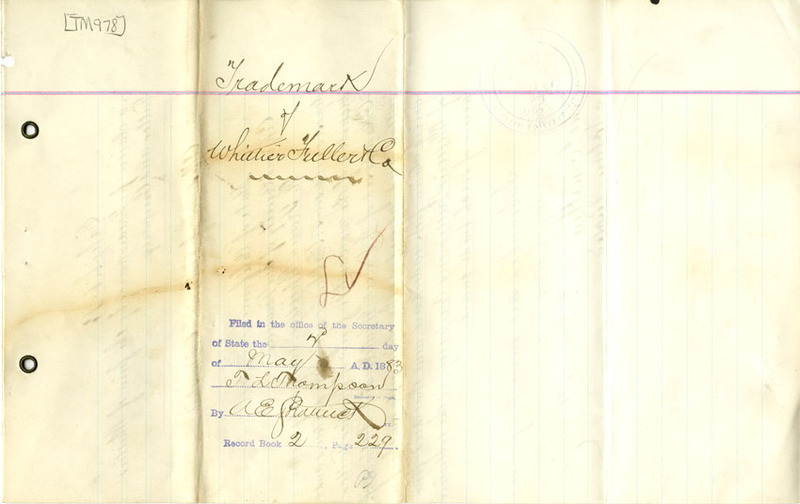 [TM978]
Trademark
of
Whittier Fuller & Co
Filed in the office of the Secretary
of State the day
of May A. D. 1883
T. L. Thompson
By A E
Record Book 2, Page 229.